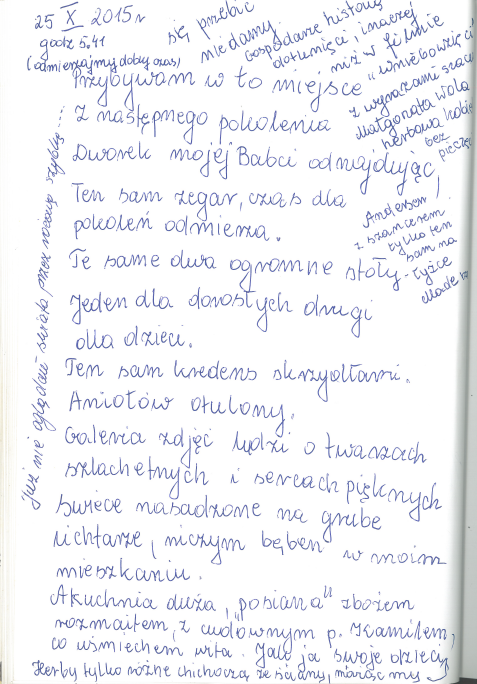 25 X 2015 r
godz 5.41
(odmierzajmy dobry czas)
Przybywam w to miejsce
Z następnego pokolenia
Dworek mojej Babci odnajdując,
Ten sam zegar, czas dla
pokoleń odmierza.
Te same dwa ogromne stoły -
jeden dla dorosłych drugi
dla dzieci.
Ten sam kredens skrzydłami.
Aniołów otulony.
Galeria zdjęć ludzi o twarzach
szlachetnych i sercach pięknych
Świece nasadzone na grube
lichtarze, niczym bęben w moim
mieszkaniu.
A kuchnia duża, "posiana" zbożem
rozmaitem, z cudownym p. Kamilem,
co uśmiechem wita. Jak ja swoje dzieci,
Herby tylko różne chichoczą ze ściany, miarę my
się przebić
nie damy.
Gospodarze historię
dotknięci, inaczej
niż w filmie
"wniebowzięci
z wyrazami
Małgorzata Wola
herbowa
bez
Andersen /
z szancerem.
tylko ten
sam na
łyżce
Made
Już nie oglądam świata przez szybkę...